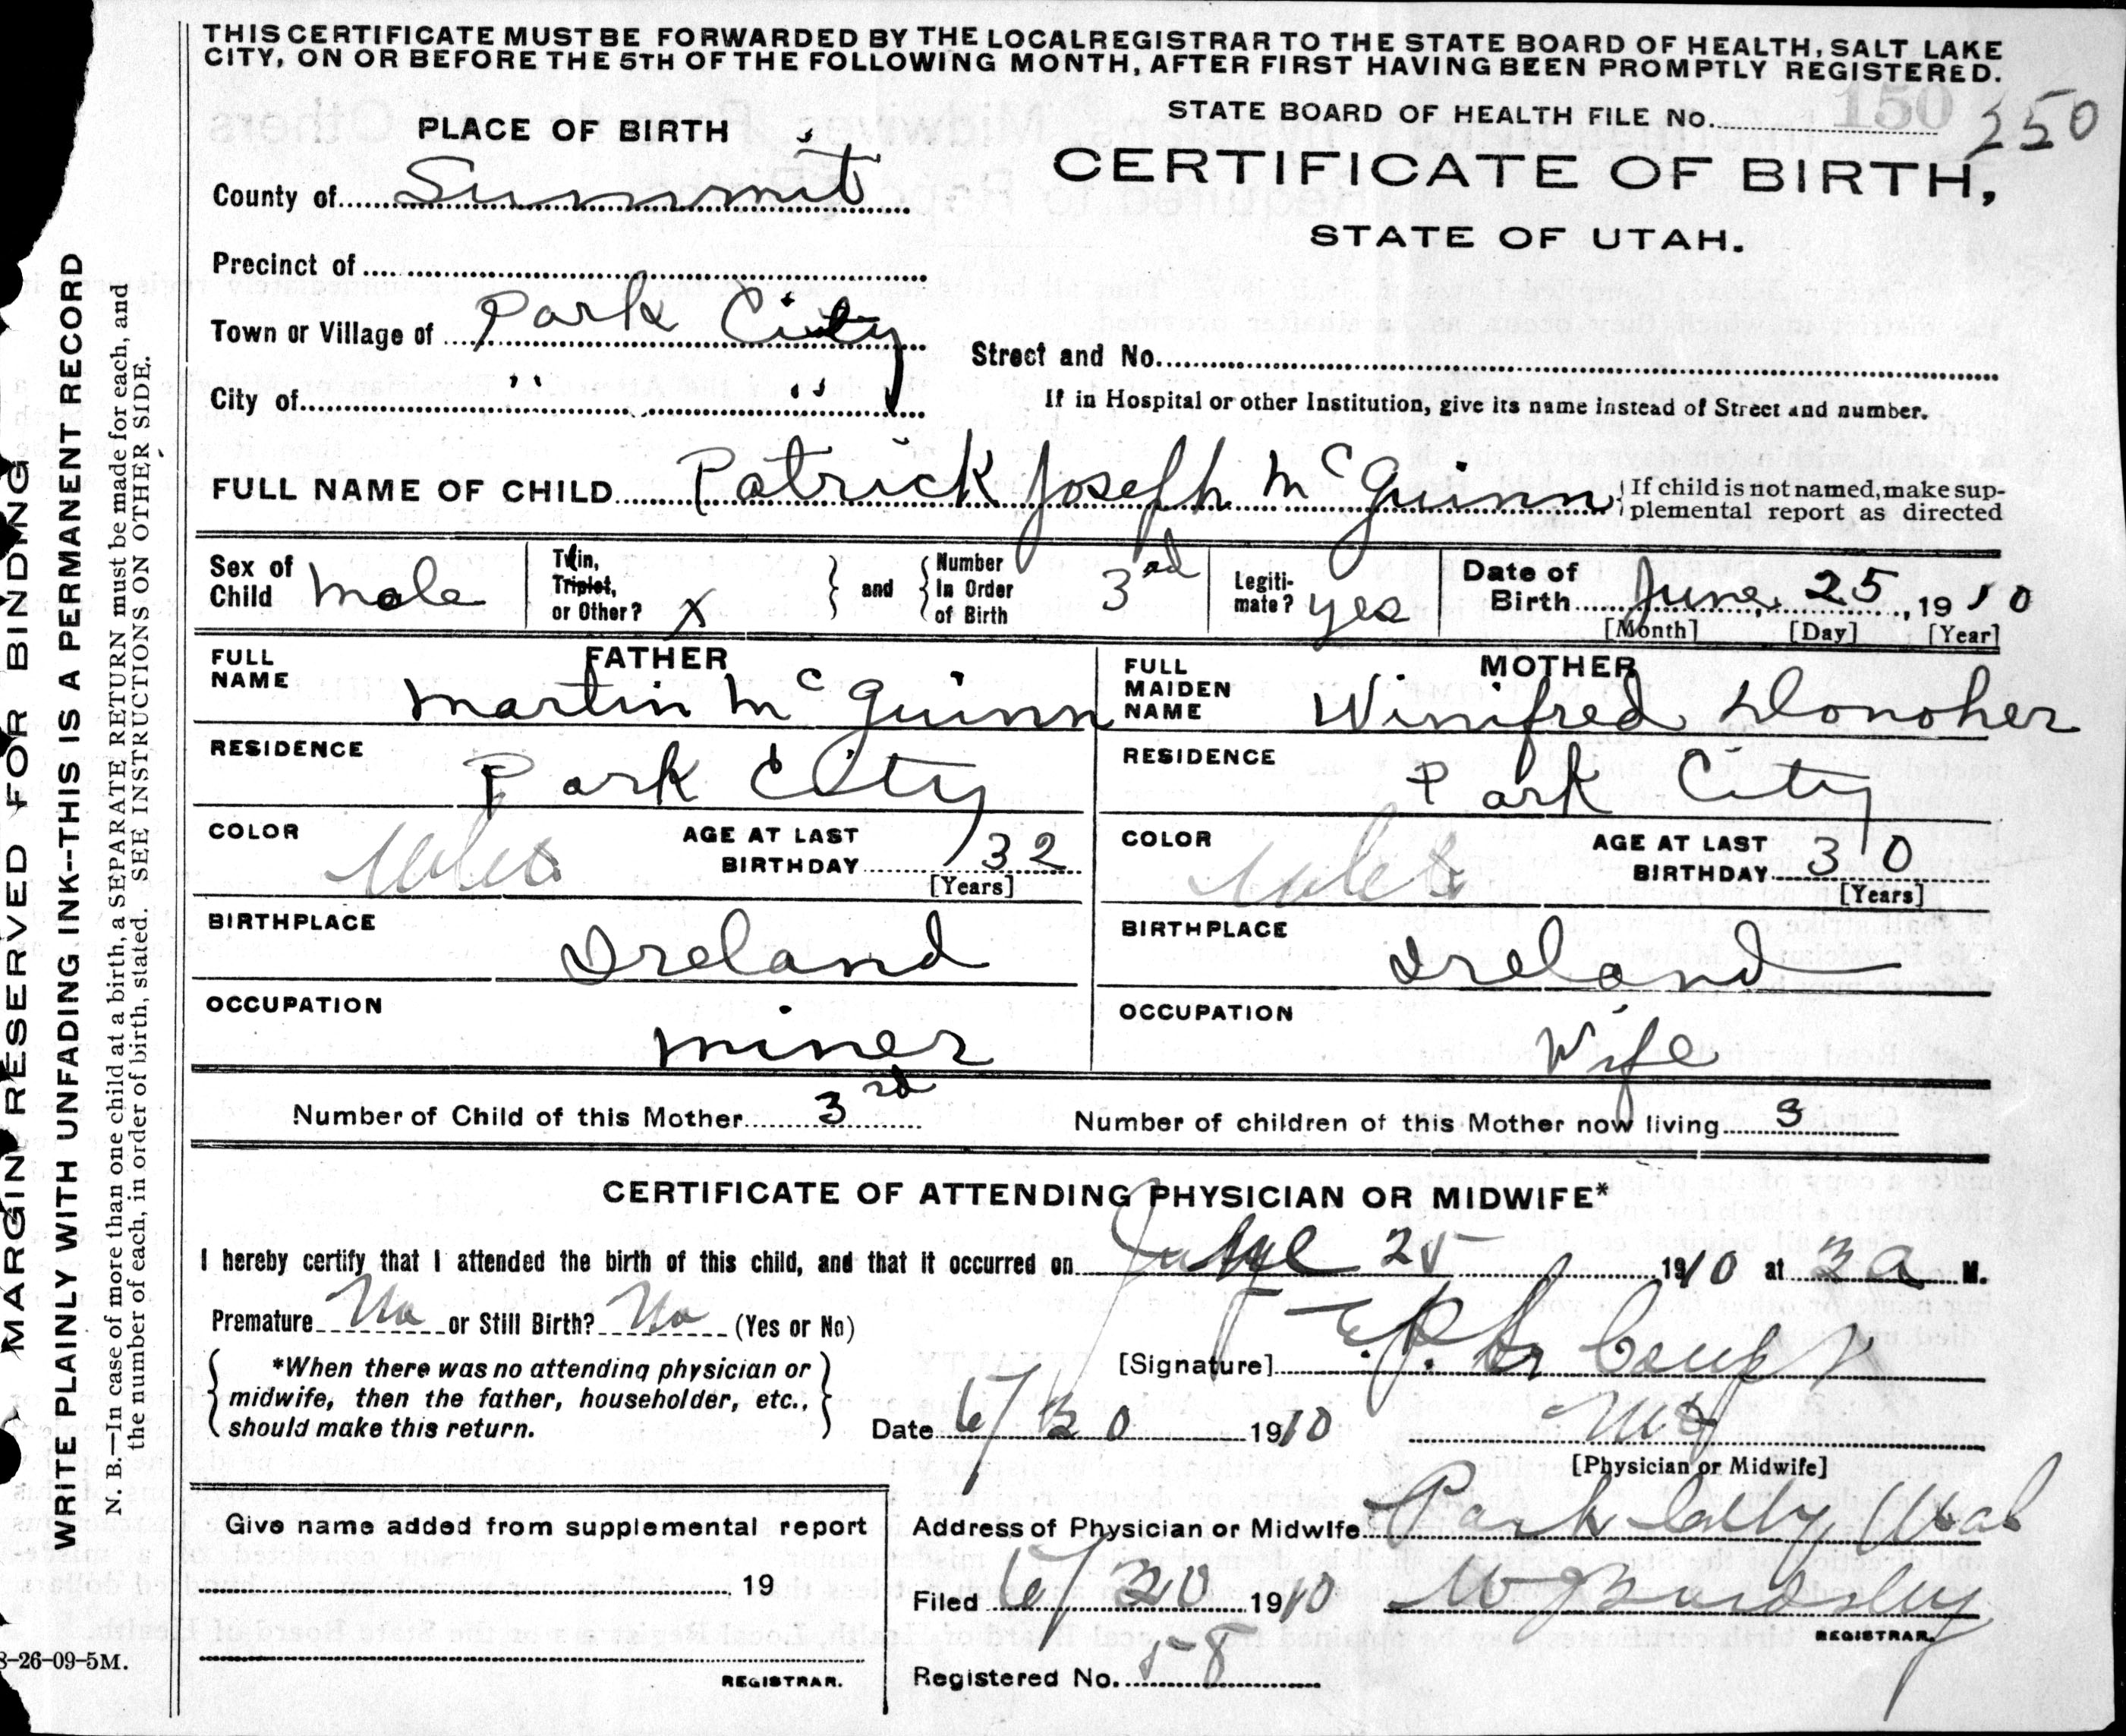 THIS CERTIFICATE MUST BE FORWARDED BY THE LOCAL REGISTRAR TO THE STATE BOARD OF HEALTH, SALT LAKE
CITY, ON OR BEFORE THE 5TH OF THE FOLLOWING MONTH, AFTER FIRST HAVING BEEN PROMPTLY REGISTERED.
STATE BOARD OF HEALTH FILE No. 150 250
PLACE OF BIRTH
CERTIFICATE OF BIRTH,
STATE OF UTAH.
County of Summit
Precinct of
Town or Village of Park City
Street and No.
City of " "
If in Hospital or other Institution, give its name instead of Street and number.
FULL NAME OF CHILD Patrick Joseph McGuinn { If child is not named, make sup-
plemental report as directed
Sex of Child male
Twin, Triplet, or Other? x } and { Number In Order of Birth 3rd
Legiti-
mate? yes
Date of Birth June, 25, 1910
[Month] [Day] [Year]
FATHER
FULL NAME Martin McGuinn
RESIDENCE Park City
COLOR White AGE AT LAST BIRTHDAY 32
[Years]
BIRTHPLACE Ireland
OCCUPATION miner
MOTHER
FULL MAIDEN NAME Winifred Donoher
RESIDENCE Park City
COLOR White AGE AT LAST BIRTHDAY 30
[Years]
BIRTHPLACE Ireland
OCCUPATION Wife
Number of Child of this Mother 3rd Number of children of this Mother now living 3
CERTIFICATE OF ATTENDING PHYSICIAN OR MIDWIFE*
I hereby certify that I attended the birth of this child, and that it occurred on June 25 1910 at 3 a M.
Premature No or Still Birth? No (Yes or No)
[Signature] E.P. Le Compte
*When there was no attending physician or
midwife, then the father, householder, etc.,
should make this return.
Date 6/30 1910 MD
[Physician or Midwife]
Give name added from supplemental report
19
REGISTRAR.
Address of Physician or Midwife Park City, Utah
Filed 6/30 1910 W Bardsley
REGISTRAR.
Registered No. 58
MARGIN RESERVED FOR BINDING
WRITE PLAINLY WITH UNFADING INK--THIS IS A PERMANENT RECORD
N. B.—In case of more than one child at a birth, a SEPARATE RETURN must be made for each, and
the number of each, in order of birth, stated. SEE INSTRUCTIONS ON OTHER SIDE.
8-26-09-5M.